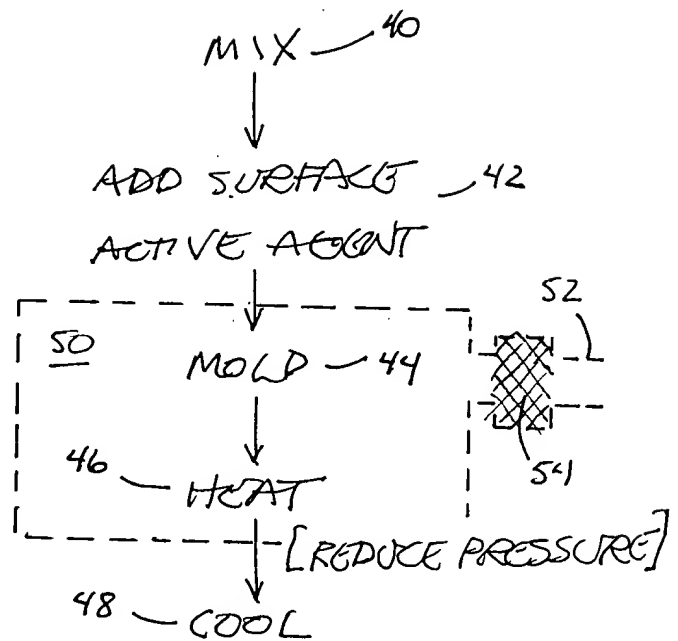 MIX 40
ADD SURFACE 42
ACTIVE AGENT
52
50
MOLD 44
46 HEAT 54
[REDUCE PRESSURE]
48 COOL